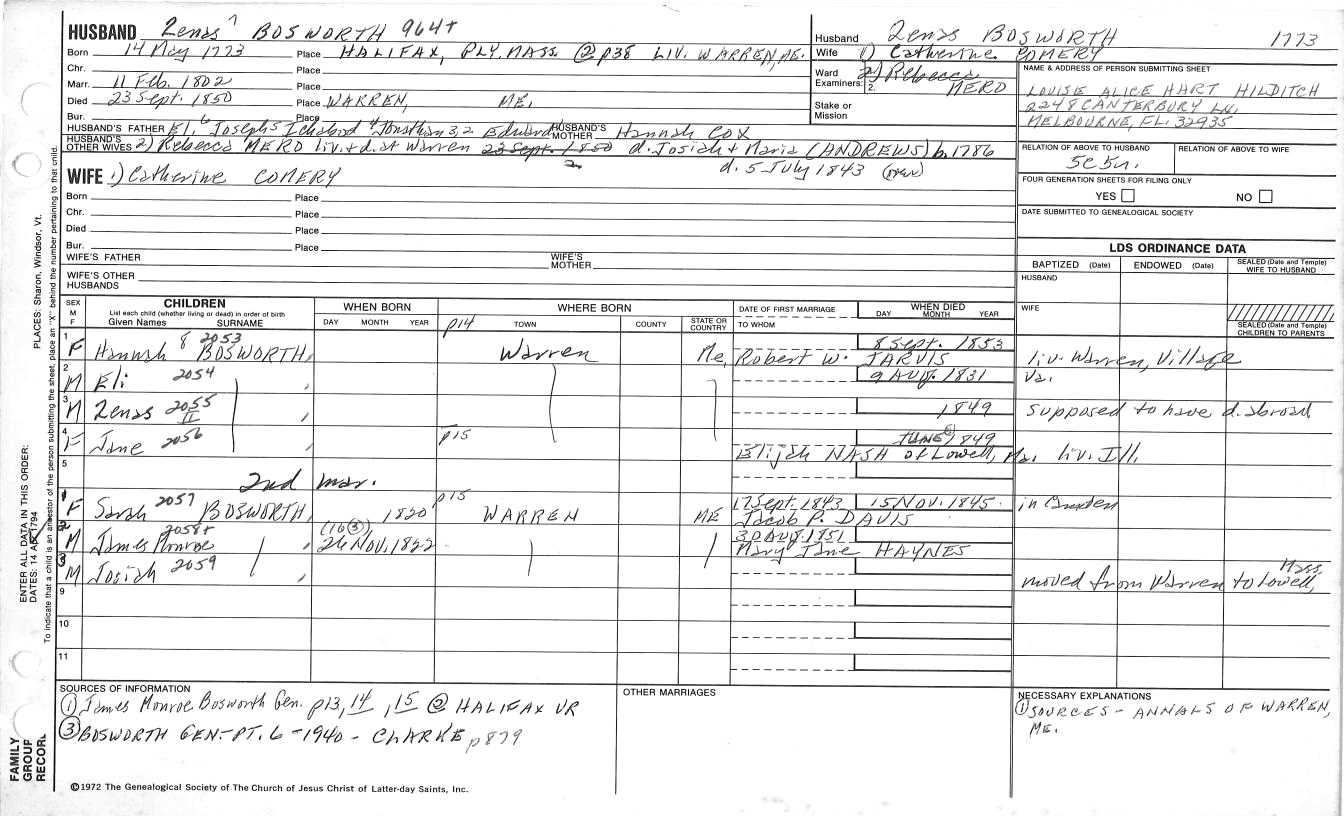 HUSBAND Zenas 7 BOSWORTH 964+
Born 14 May 1773 Place HALIFAX, PLY. MASS. @ p38 LIV. WARREN, ME.
Chr. Place
Marr. 11 Feb. 1802 Place
Died 23 Sept. 1850 Place WARREN, ME.
Bur. Place
HUSBAND'S FATHER Eli 6 Joseph 5 Ichabod 4 Jonathan 3,2 Edward 1 HUSBAND'S MOTHER Hannah COX
HUSBAND'S OTHER WIVES 2) Rebecca MERO liv. & d. at Warren 23 Sept. 1850 d. Josiah & Maria (ANDREWS) b. 1786
d. 5 July 1843 (over)
Husband Zenas BOSWORTH 1773
Wife 1) Catherine COMERY
2) Rebecca MERO
Ward
Examiners: 2.
Stake or
Mission
NAME & ADDRESS OF PERSON SUBMITTING SHEET
LOUISE ALICE HART HILDITCH
2248 CANTERBURY LN.
MELBOURNE, FL. 32935
RELATION OF ABOVE TO HUSBAND RELATION OF ABOVE TO WIFE
5C5r.
FOUR GENERATION SHEETS FOR FILING ONLY
YES NO
DATE SUBMITTED TO GENEALOGICAL SOCIETY
WIFE 1) Catherine COMERY
Born Place
Chr. Place
Died Place
Bur. Place
WIFE'S FATHER WIFE'S MOTHER
WIFE'S OTHER HUSBANDS
LDS ORDINANCE DATA
BAPTIZED (Date) ENDOWED (Date) SEALED (Date and Temple) WIFE TO HUSBAND
HUSBAND
WIFE
SEALED (Date and Temple) CHILDREN TO PARENTS
SEX M F
CHILDREN
List each child (whether living or dead) in order of birth
Given Names SURNAME
WHEN BORN
DAY MONTH YEAR
WHERE BORN
p14 TOWN COUNTY STATE OR COUNTRY
DATE OF FIRST MARRIAGE
TO WHOM
WHEN DIED
DAY MONTH YEAR
1 F Hannah 8 2053 BOSWORTH, Warren Me, Robert W. JARVIS 8 Sept. 1853 liv. Warren, Village
2 M Eli 2054 9 Aug. 1831 Va.
3 M Zenas II 2055 1849 supposed to have d. abroad
4 F Jane 2056 p15 Elijah NASH of Lowell, Ma. JUNE 1849 liv. Ill.
5
2nd mar.
1 F Sarah 2057 BOSWORTH, 1820 p15 WARREN ME 17 Sept. 1843 Jacob P. DAVIS 15 NOV. 1845 in
2 M James Monroe 2058+ (16 ③) 26 NOV. 1822 30 Aug. 1851 Mary Jane HAYNES
3 M Josiah 2059 moved from Warren to Lowell, Mass.
9
10
11
SOURCES OF INFORMATION
① James Monroe Bosworth Gen. p13, 14, 15 @ HALIFAX VR
③ BOSWORTH GEN.-PT. 6 - 1940 - CLARKE p879
OTHER MARRIAGES
NECESSARY EXPLANATIONS
① SOURCES - ANNALS OF WARREN,
ME.
©1972 The Genealogical Society of The Church of Jesus Christ of Latter-day Saints, Inc.
FAMILY
GROUP
RECORD
ENTER ALL DATA IN THIS ORDER:
DATES: 14 Apr 1794
PLACES: Sharon, Windsor, Vt.
To indicate that a child is an ancestor of the person submitting the sheet, place an "X" behind the number pertaining to that child.